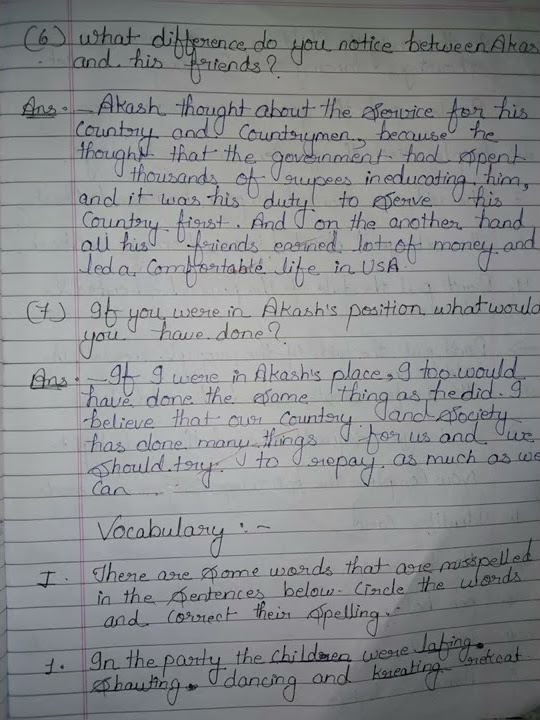 (6) What difference do you notice between Akas
and his friends?
Ans. – Akash thought about the service for his
Country and Countrymen, because he
thought that the government had spent
thousands of rupees in educating him,
and it was his duty to serve his
Country first. And on the another hand
all his friends earned lot of money and
led a Comfortable life in USA.
(7) If you were in Akash's position what would
you have done?
Ans. – If I were in Akash's place, I too would
have done the same thing as he did. I
believe that our Country and Society
has done many things for us and we
should try to repay as much as we
can.
Vocabulary :-
I. There are some words that are misspelled
in the sentences below. Circle the words
and correct their spelling.-
1. In the party the children were lafing.
Shauting. dancing and kreating